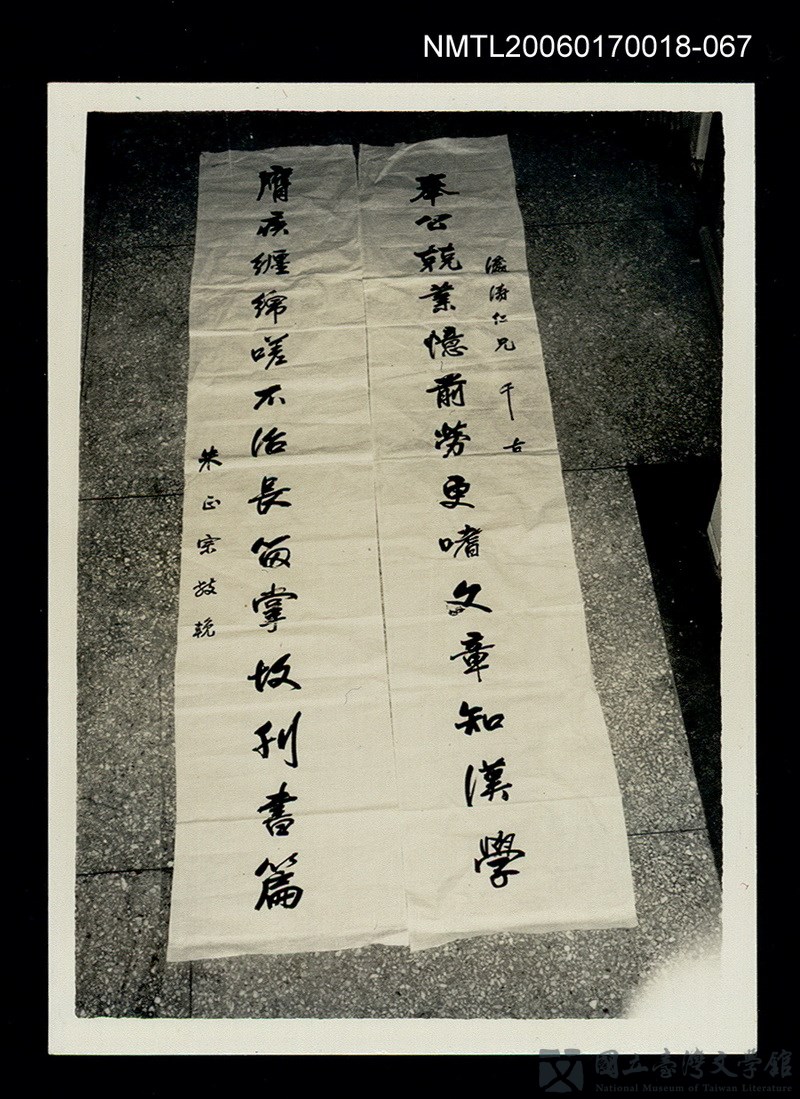 NMTL20060170018-067
瀛濤仁兄 千古
奉公兢業憶前勞更嗜文章知漢學
膺疾纏綿嗟不治長留掌故刊書篇
朱正宗敬輓
國立臺灣文學館
National Museum of Taiwan Literature